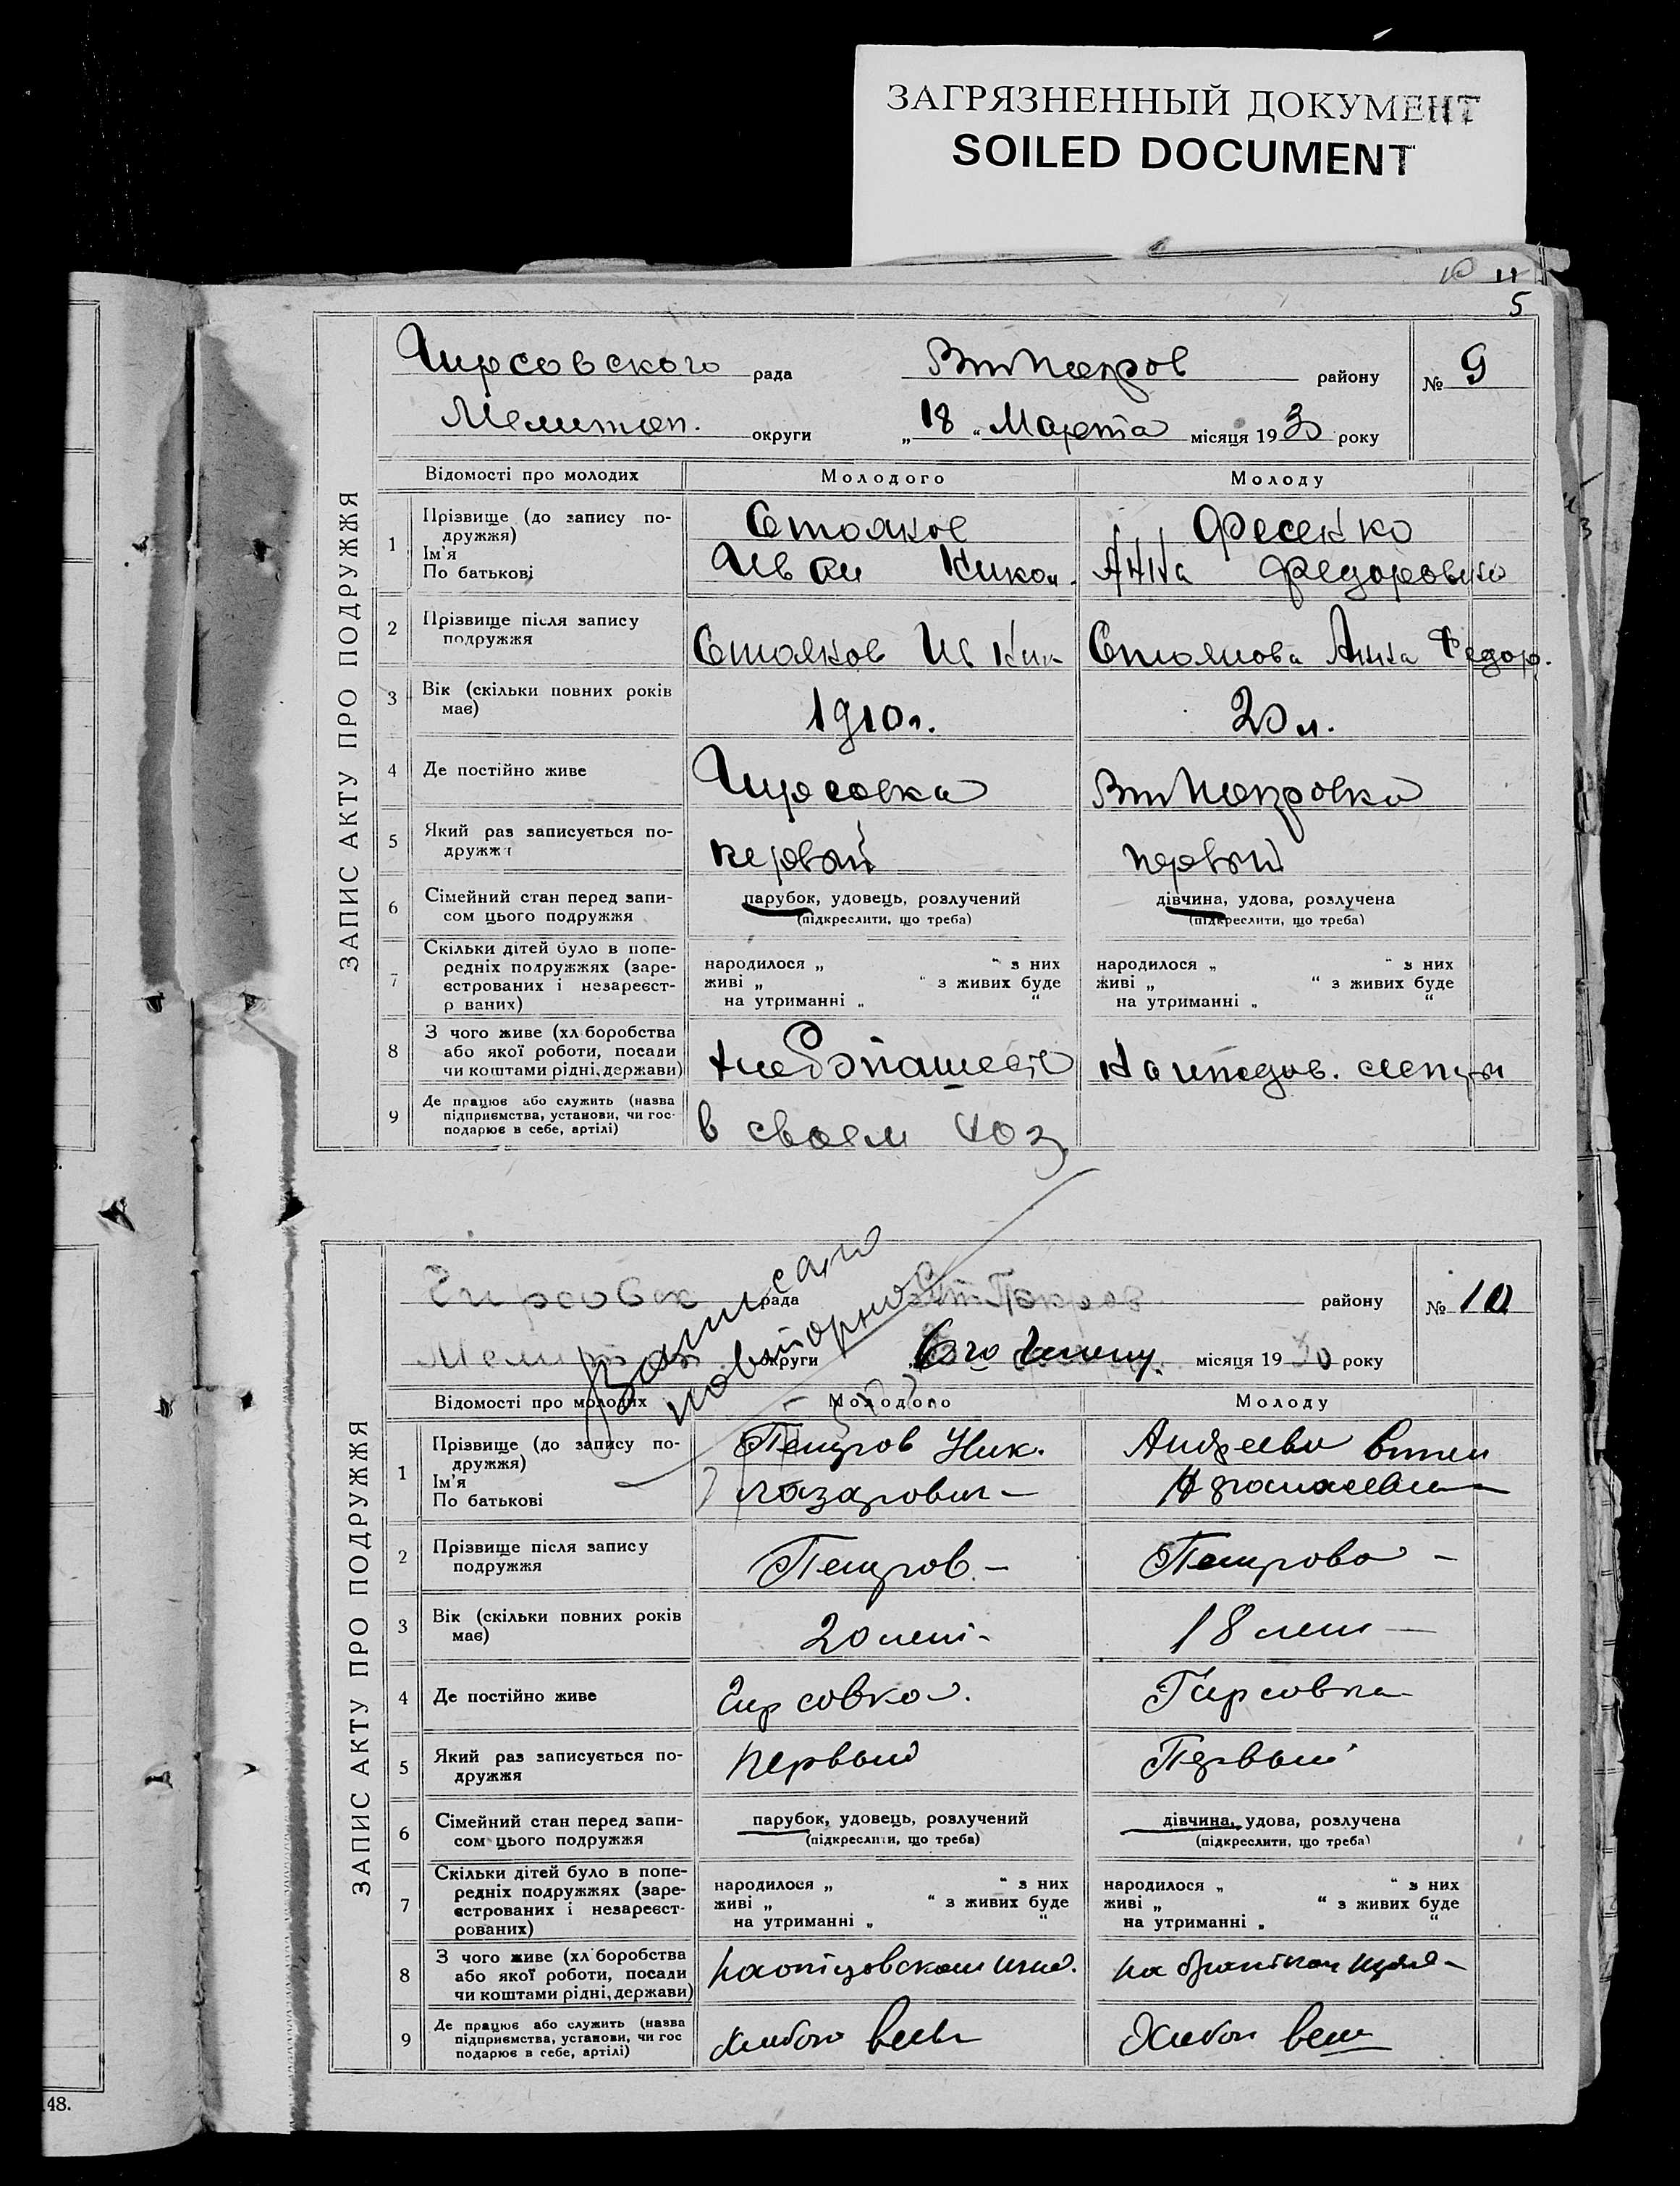 ЗАГРЯЗНЕННЫЙ ДОКУМЕНТ
SOILED DOCUMENT
10 11
5
ЗАПИС АКТУ ПРО ПОДРУЖЖЯ
Гирсовского рада ВтПокров району № 9
Мелитоп. округи „18“ Марта місяця 1930 року
Відомості про молодих Молодого Молоду
1 Прізвище (до запису по-
дружжя)
Ім'я
По батькові
Стоянов Фесенко
Иван Никол. Анна Федоровна
2 Прізвище після запису
подружжя
Стоянов Ив Ник Стоянова Анна Федор.
3 Вік (скільки повних років
має)
1910г. 20 л.
4 Де постійно живе Гирсовка ВтПокровка
5 Який раз записується по-
дружжя
первый первый
6 Сімейний стан перед запи-
сом цього подружжя
парубок, удовець, розлучений дівчина, удова, розлучена
(підкреслити, що треба) (підкреслити, що треба)
7 Скільки дітей було в попе-
редніх подружжях (заре-
єстрованих і незареєст-
р ваних)
народилося „ “ з них народилося „ “ з них
живі „ “ з живих буде живі „ “ з живих буде
на утриманні „ “ на утриманні „ “
8 З чого живе (хл боробства
або якої роботи, посади
чи коштами рідні, держави)
хлебопашест
9 Де працює або служить (назва
підприємства, установи, чи гос-
подарює в себе, артілі)
в своем хоз
ЗАПИС АКТУ ПРО ПОДРУЖЖЯ
Записано
повторно
Гирсовск рада ВтПокров району № 10
Мелитоп округи 6го місяця 1930 року
Відомості про молодих Молодого Молоду
1 Прізвище (до запису по-
дружжя)
Ім'я
По батькові
Петров Ник. Андреева
Лазарович –
2 Прізвище після запису
подружжя
Петров – Петрова –
3 Вік (скільки повних років
має)
20 лет – 18 лет –
4 Де постійно живе Гирсовка. Гирсовка
5 Який раз записується по-
дружжя
первый Первый
6 Сімейний стан перед запи-
сом цього подружжя
парубок, удовець, розлучений дівчина, удова, розлучена
(підкреслити, що треба) (підкреслити, що треба)
7 Скільки дітей було в попе-
редніх подружжях (заре-
єстрованих і незареєст-
рованих)
народилося „ “ з них народилося „ “ з них
живі „ “ з живих буде живі „ “ з живих буде
на утриманні „ “ на утриманні „ “
8 З чого живе (хл боробства
або якої роботи, посади
чи коштами рідні, держави)
на отцовском
9 Де працює або служить (назва
підприємства, установи, чи гос
подарює в себе, артілі)
48.